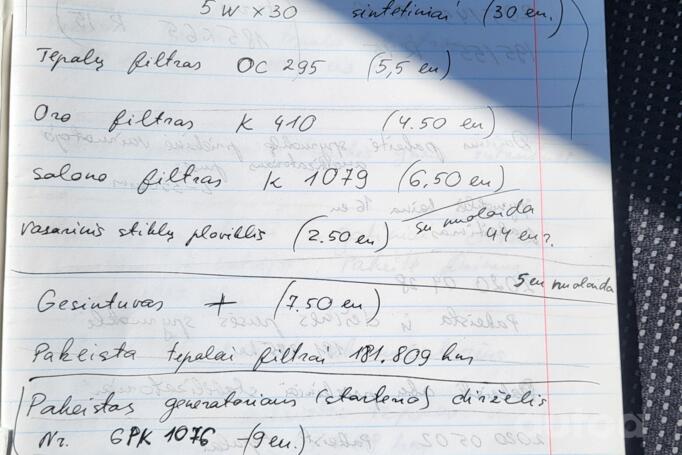 5W x 30 sintetiniai (30 en.)
Tepalų filtras OC 295 (5,5 en)
Oro filtras K 410 (4.50 en)
salono filtras K 1079 (6,50 en)
su nuolaida
vasarinis stiklų ploviklis (2.50 en) 44 eur.
5 en nuolaida
Gesintuvas + (7.50 en)
Pakeista tepalai filtrai 181.809 km
Pakeistas generatoriaus (starterio) dirželis
Nr. 6PK 1076 (9 en.)